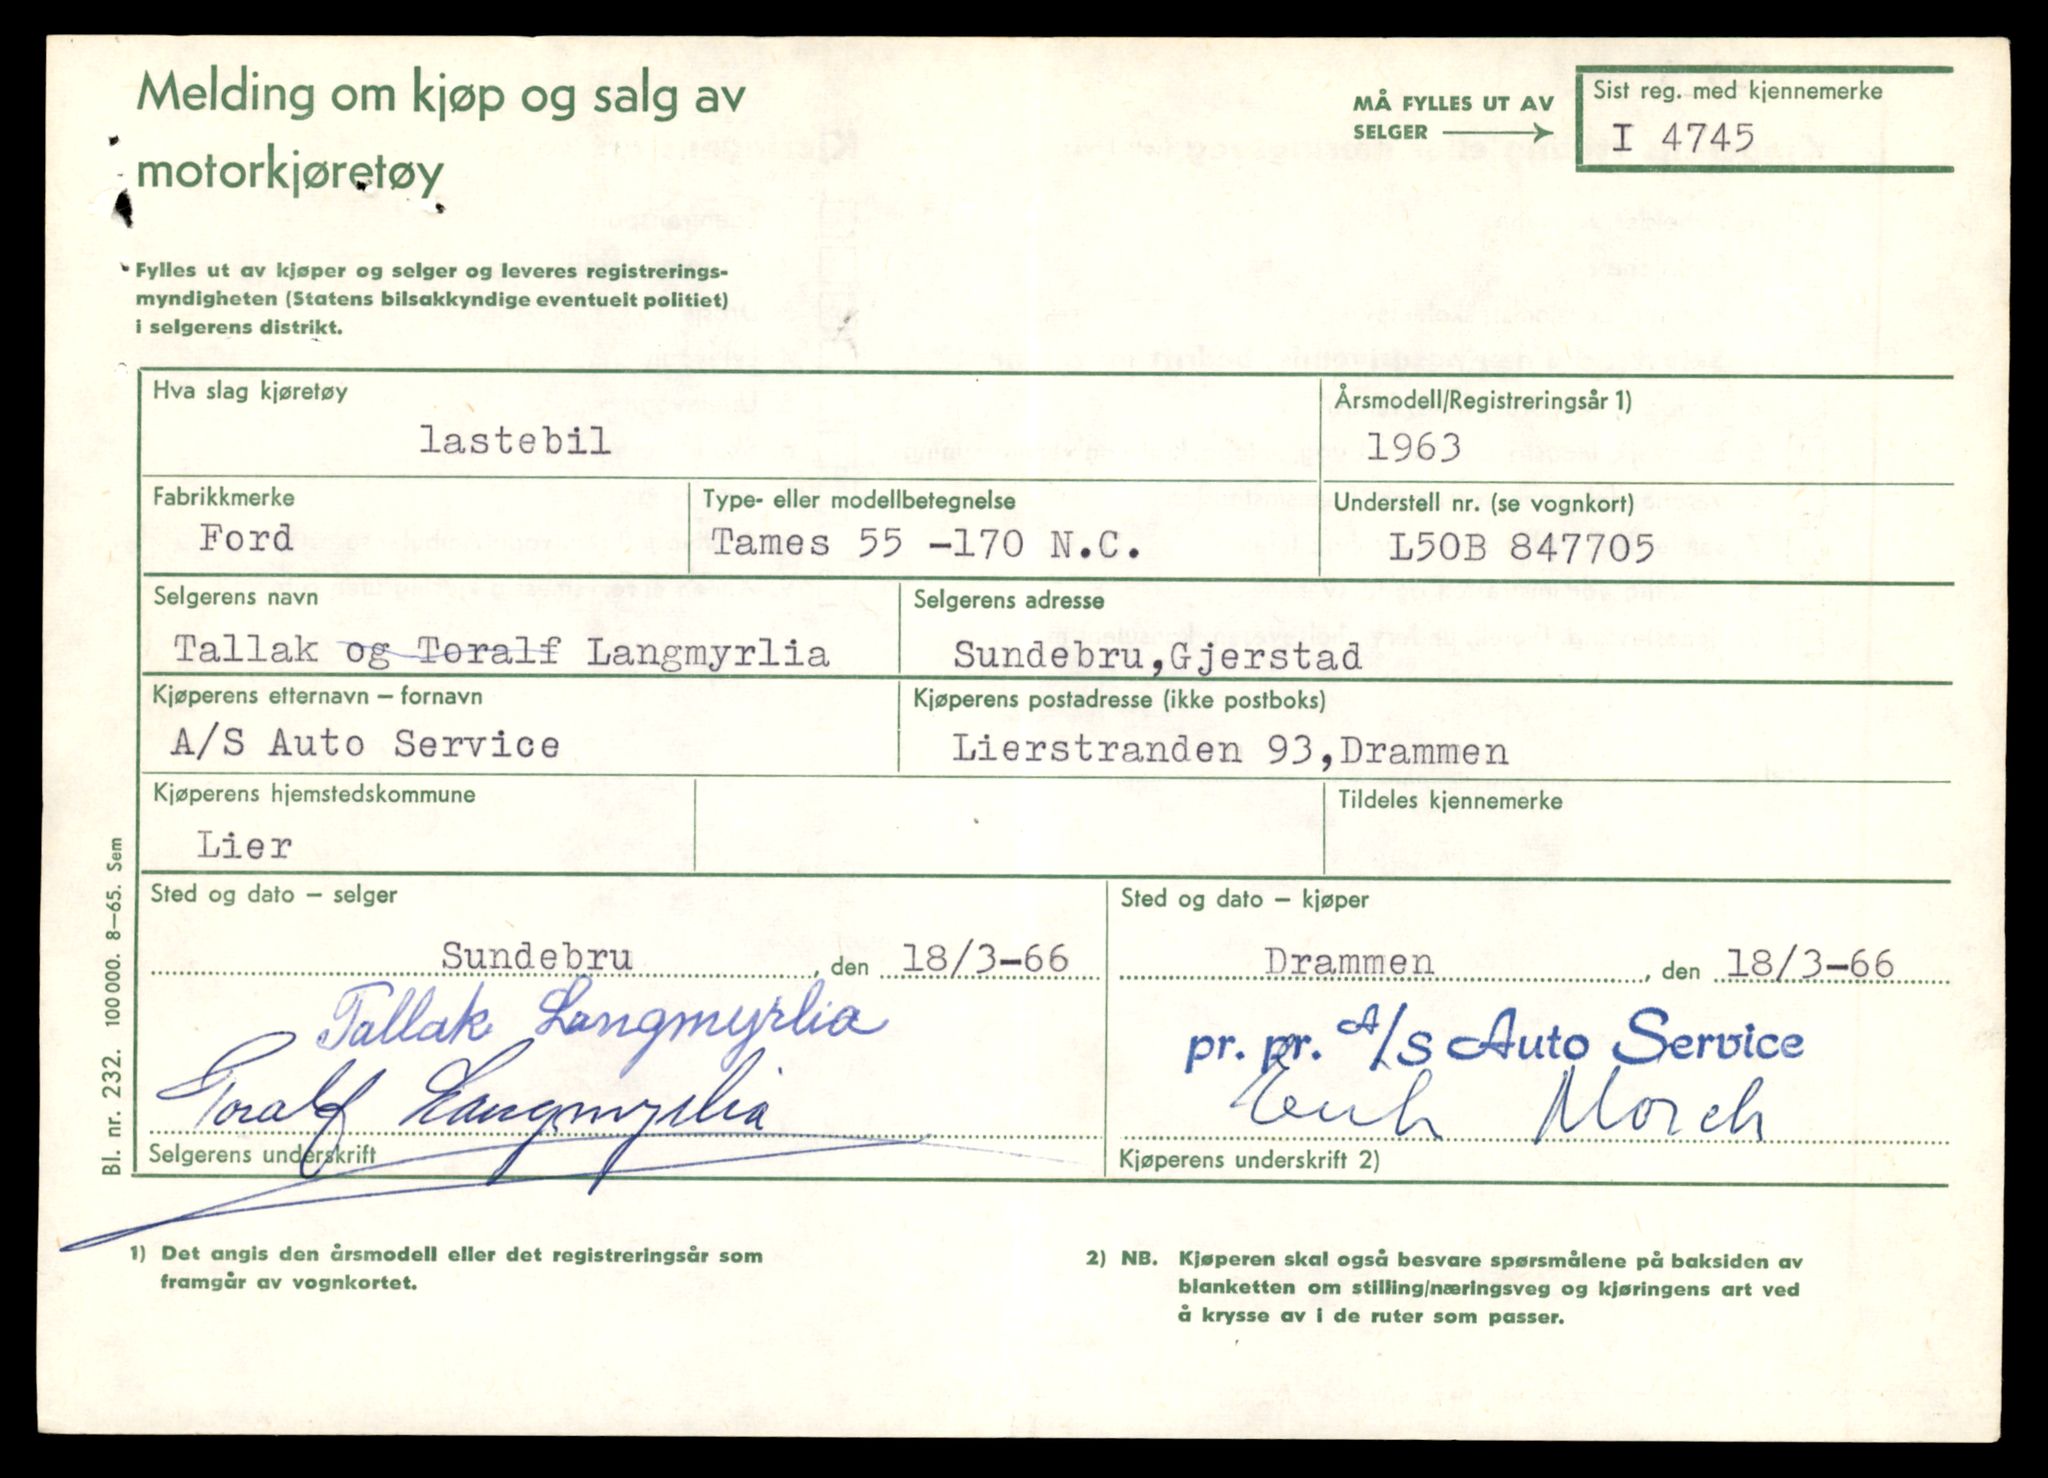 Melding om kjøp og salg av
motorkjøretøy
MÅ FYLLES UT AV
SELGER
Sist reg. med kjennemerke
I 4745
Fylles ut av kjøper og selger og leveres registrerings-
myndigheten (Statens bilsakkyndige eventuelt politiet)
i selgerens distrikt.
Hva slag kjøretøy
lastebil
Årsmodell/Registreringsår 1)
1963
Fabrikkmerke
Ford
Type- eller modellbetegnelse
Tames 55 -170 N.C.
Understell nr. (se vognkort)
L50B 847705
Selgerens navn
Tallak og Toralf Langmyrlia
Selgerens adresse
Sundebru,Gjerstad
Kjøperens etternavn – fornavn
A/S Auto Service
Kjøperens postadresse (ikke postboks)
Lierstranden 93,Drammen
Kjøperens hjemstedskommune
Lier
Tildeles kjennemerke
Sted og dato – selger
Sundebru, den 18/3-66
Tallak Langmyrlia
Toralf Langmyrlia
Selgerens underskrift
Sted og dato – kjøper
Drammen, den 18/3-66
pr. pr. A/S Auto Service
Morch
Kjøperens underskrift 2)
Bl. nr. 232. 100 000. 8–65. Sem
1) Det angis den årsmodell eller det registreringsår som
framgår av vognkortet.
2) NB. Kjøperen skal også besvare spørsmålene på baksiden av
blanketten om stilling/næringsveg og kjøringens art ved
å krysse av i de ruter som passer.